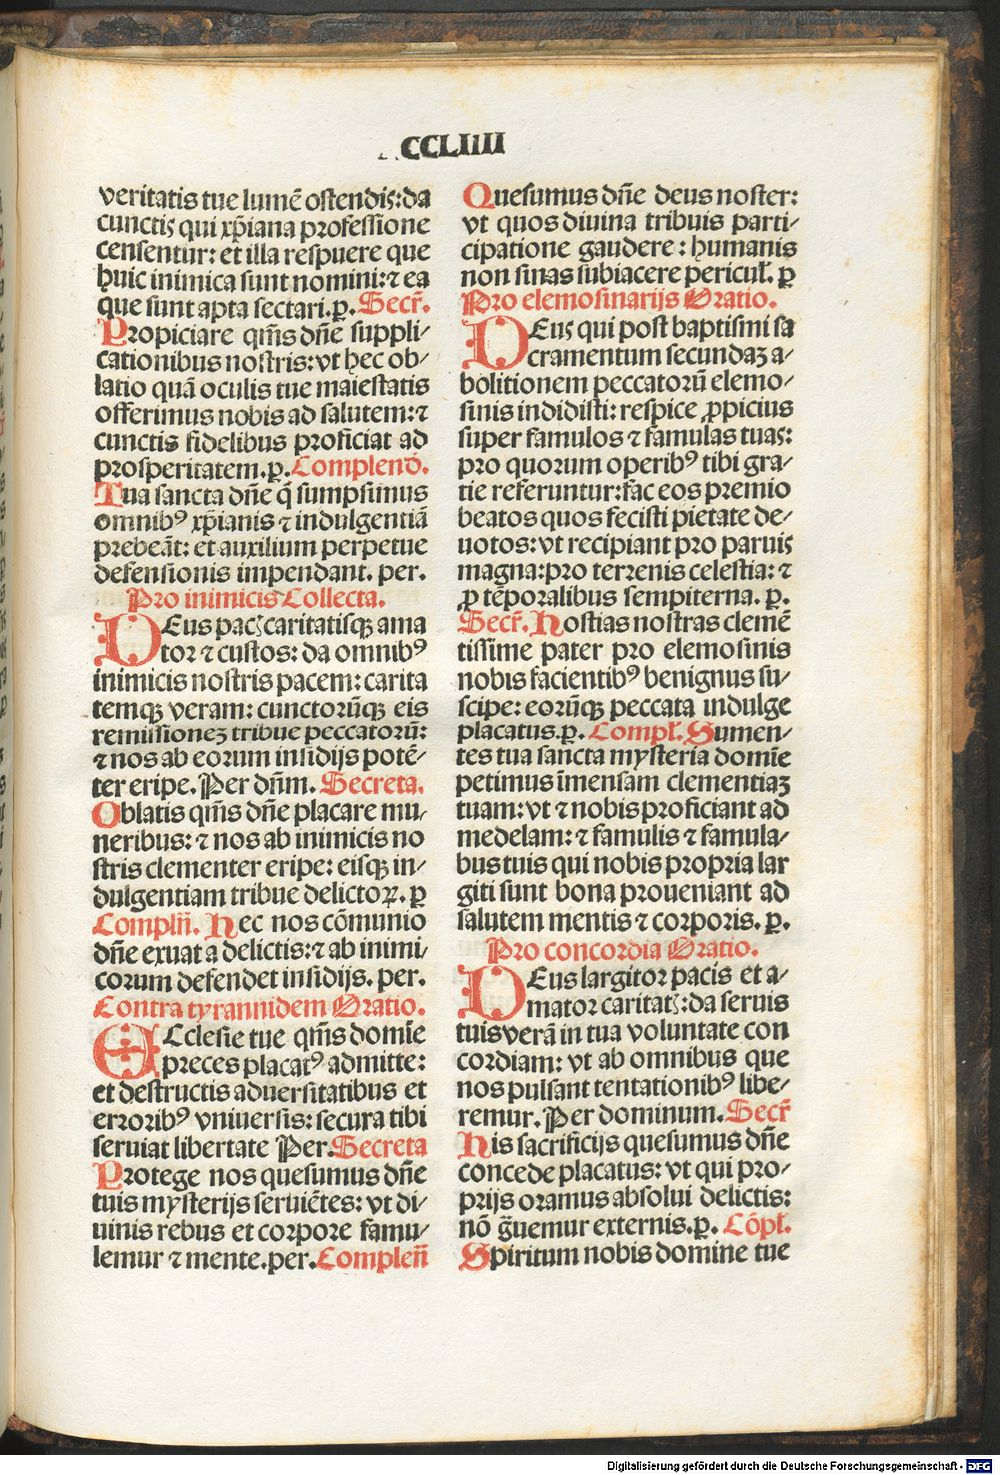 CCLIIII
veritatis tue lumē ostendis: da
cunctis qui xp̄iana professione
censentur: et illa respuere que
huic inimica sunt nomini: ⁊ ea
que sunt apta sectari. p̲. Secr̄.
Propiciare qm̄s dn̄e suppli⸗
cationibus nostris: vt hec ob⸗
latio quā oculis tue maiestatis
offerimus nobis ad salutem: ⁊
cunctis fidelibus proficiat ad
prosperitatem. p̲. Complend̄.
Tua sancta dn̄e q̄ sumpsimus
omnibꝰ xp̄ianis ⁊ indulgentiā
prebeāt: et auxilium perpetue
defensionis impendant. per.
Pro inimicis Collecta.
DEus pacꝭ caritatisqꝫ ama
tor ⁊ custos: da omnibꝰ
inimicis nostris pacem: carita
temqꝫ veram: cunctorūqꝫ eis
remissioneꝫ tribue peccatorū:
⁊ nos ab eorum insidijs potē⸗
ter eripe. Per dn̄m. Secreta.
Oblatis qm̄s dn̄e placare mu⸗
neribus: ⁊ nos ab inimicis no
stris clementer eripe: eisqꝫ in⸗
dulgentiam tribue delictoꝝ. p̲
Compln̄. Hec nos cōmunio
dn̄e exuat a delictis: ⁊ ab inimi⸗
corum defendet insidijs. per.
Contra tyrannidem Oratio.
ECclesie tue qm̄s domīe
preces placatꝰ admitte:
et destructis aduersitatibus et
erroribꝰ vniuersis: secura tibi
seruiat libertate Per. Secreta
Protege nos quesumus dn̄e
tuis mysterijs seruiētes: vt di⸗
uinis rebus et corpore famu⸗
lemur ⁊ mente. per. Complen̄
Quesumus dn̄e deus noster:
vt quos diuina tribuis parti⸗
cipatione gaudere: humanis
non sinas subiacere pericul̄. p̲
Pro elemosinarijs Oratio.
DEus qui post baptismi sa
cramentum secundaꝫ a⸗
bolitionem peccatorū elemo⸗
sinis indidisti: respice ꝓpicius
super famulos ⁊ famulas tuas:
pro quorum operibꝰ tibi gra⸗
tie referuntur: fac eos premio
beatos quos fecisti pietate de⸗
uotos: vt recipiant pro paruis
magna: pro terrenis celestia: ⁊
ꝓ tēporalibus sempiterna. p̲.
Secr̄. Hostias nostras clemē
tissime pater pro elemosinis
nobis facientibꝰ benignus su⸗
scipe: eorūqꝫ peccata indulge
placatus. p̲. Compl̄. Sumen⸗
tes tua sancta mysteria domīe
petimus īmensam clementiaꝫ
tuam: vt ⁊ nobis proficiant ad
medelam: ⁊ famulis ⁊ famula⸗
bus tuis qui nobis propria lar
giti sunt bona proueniant ad
salutem mentis ⁊ corporis. p̲.
Pro concordia Oratio.
DEus largitor pacis et a⸗
mator caritatꝭ: da seruis
tuis verā in tua voluntate con
cordiam: vt ab omnibus que
nos pulsant tentationibꝰ libe⸗
remur. Per dominum. Secr̄
His sacrificijs quesumus dn̄e
concede placatus: vt qui pro⸗
prijs oramus absolui delictis:
nō g̃uemur externis. p̲. Cōpl̄.
Spiritum nobis domine tue
Digitalisierung gefördert durch die Deutsche Forschungsgemeinschaft - DFG